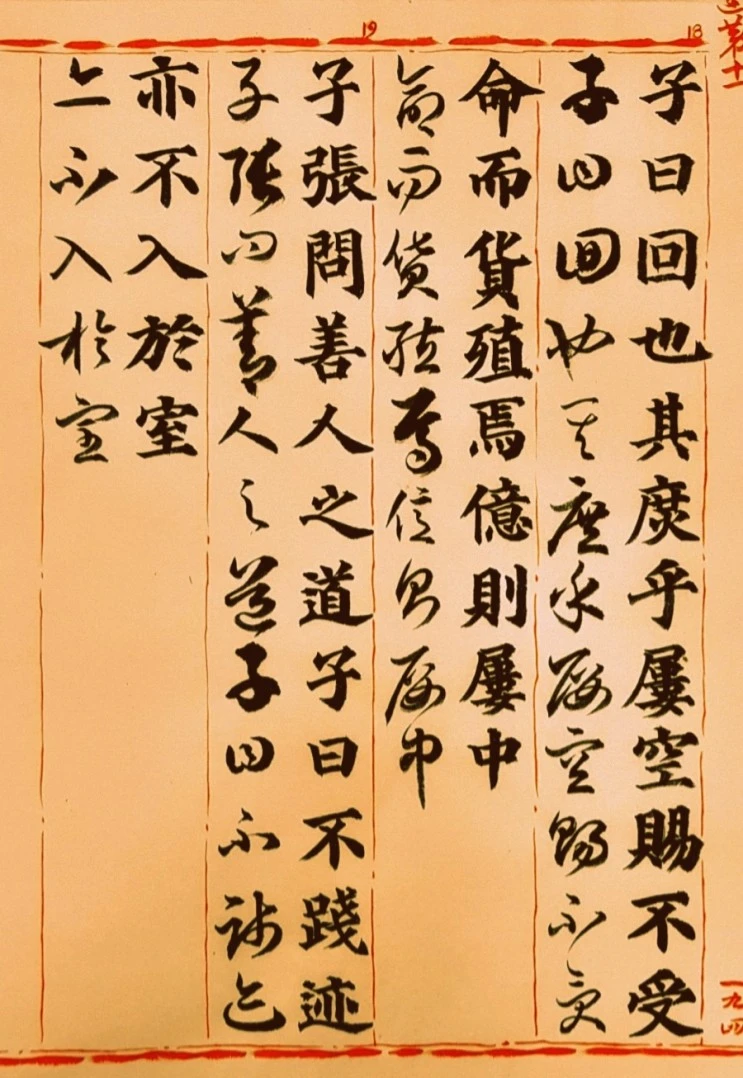 進第十一
一九四
18
子曰回也其庶乎屢空賜不受
子曰回也其庶乎屢空賜不受
命而貨殖焉億則屢中
命而貨殖焉億則屢中
19
子張問善人之道子曰不踐迹
子張問善人之道子曰不踐迹
亦不入於室
亦不入於室